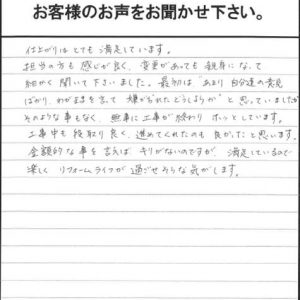 お客様のお声をお聞かせ下さい。
仕上がりはとても満足しています。
担当の方も感じが良く、変更があっても親身になって
細かく聞いて下さいました。最初は"あまり自分達の意見
ばかり、わがままを言って嫌がられたどうしようか"と思っていましたが
そのような事もなく、無事に工事が終わりホッとしています。
工事中も段取り良く、進めてくれたのも良かったと思います。
金額的な事を言えばキリがないのですが、満足しているので
楽しくリフォームライフが過ごせそうな気がします。